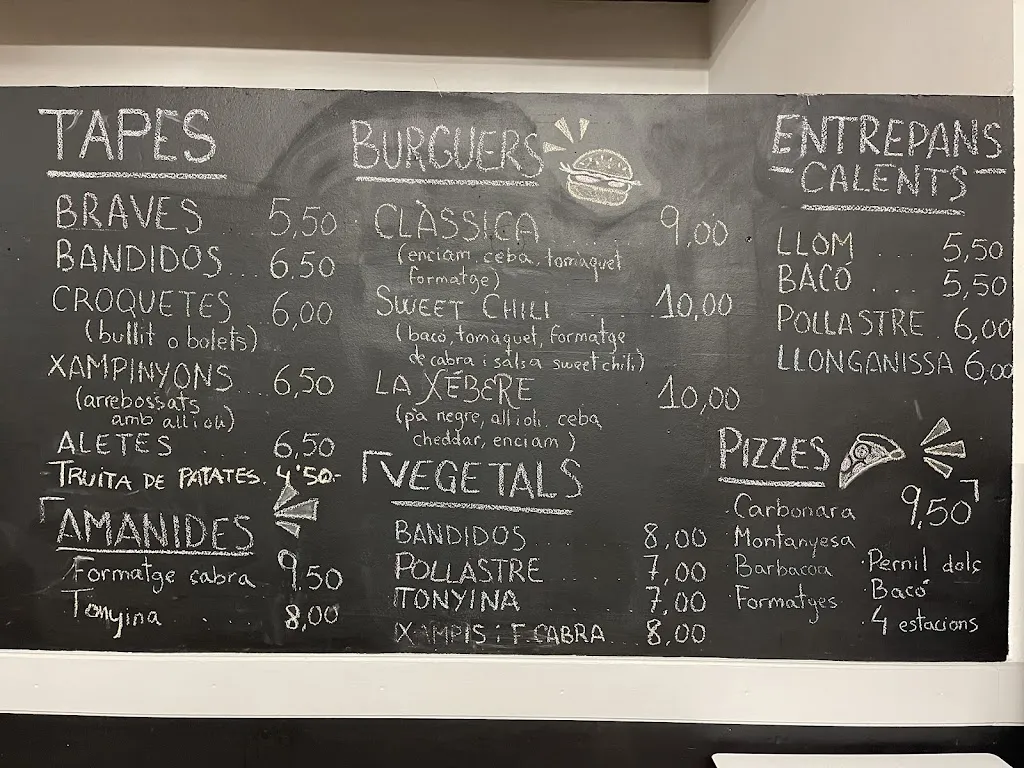 TAPES
BRAVES 5,50
BANDIDOS 6,50
CROQUETES 6,00
(bullit o bolets)
XAMPINYONS 6,50
(arrebossats
amb allioli)
ALETES 6,50
TRUITA DE PATATES. 4'50.-
AMANIDES
Formatge cabra 9,50
Tonyina 8,00
BURGUERS
CLÀSSICA 9,00
(enciam, ceba, tomàquet
formatge)
SWEET CHILI 10,00
(bacó, tomàquet, formatge
de cabra i salsa sweet chili)
LA XÉBERE 10,00
(pa negre, allioli, ceba,
cheddar, enciam)
VEGETALS
BANDIDOS 8,00
POLLASTRE 7,00
TONYINA 7,00
XAMPIS i F. CABRA 8,00
ENTREPANS
CALENTS
LLOM 5,50
BACÓ 5,50
POLLASTRE 6,00
LLONGANISSA 6,00
PIZZES
9,50
·Carbonara
·Montanyesa
·Barbacoa
·Formatges
·Pernil dolç
·Bacó
·4 estacions